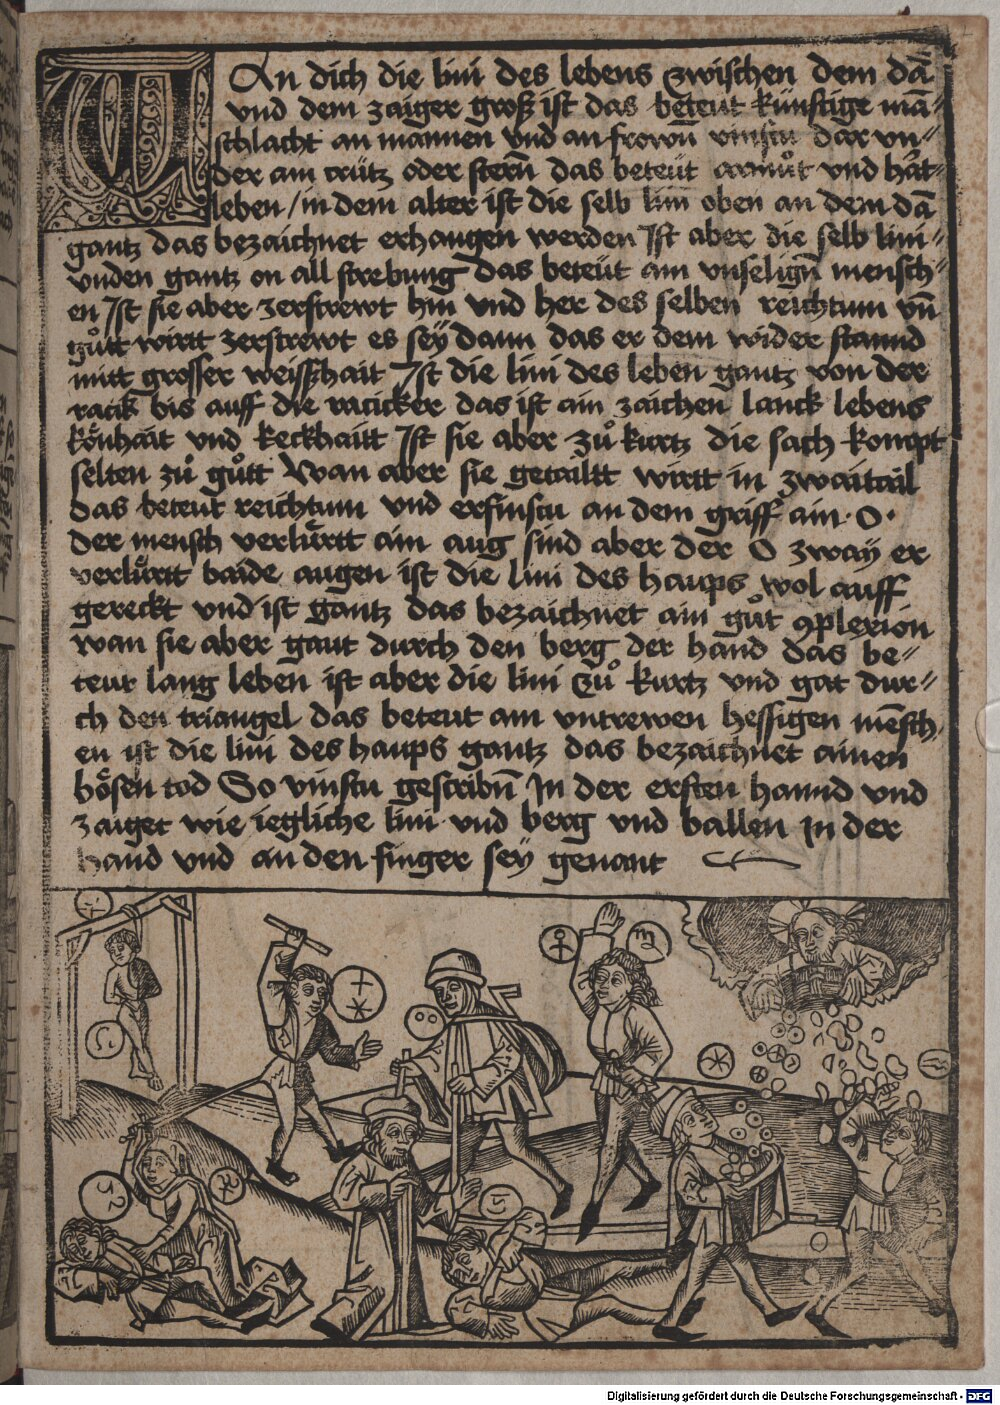 WAn dich die lini des lebens zwischen dem dā
vnd dem zaiger groß ist das beteut künftige mā-
schlacht an mannen vnd an frowē vinstu dar vn-
der ain crütz oder stern das beteüt armůt vnd hāt
leben / in dem alter ist die selb lini oben an dem dā
gantz das bezaichnet erhangen werden Ist aber die selb lini-
vnden gantz on all strebung das beteüt ain vnseligē mensch-
en Ist sie aber zerstrewt hin vnd her des selben reichtum vñ
gůtt wirtt zerstrewt es seÿ dann das er dem wider stannd
mitt grosser weißhait Ist die lini des leben gantz von der
racik bis auff die racicker das ist ain zaichen lanck lebens
kŏnhait vnd keckhaitt Ist sie aber zů kurtz die sach kompt
selten zů gůtt Wan aber sie getailtt wirtt in zwaitail
das beteut reichtum vnd erfinstu an dem griff ain · O ·
der mensch verlürtt ain aug sind aber der O zwaÿ er
verlürtt baide augen ist die lini des haups wol auff
gereckt vnd ist gantz das bezaichnet ain gůt ꝯplexion
wan sie aber gaut durch den berg der hand das be-
teut lang leben ist aber die lini zů kurtz vnd gat dur-
ch den triangel das beteut ain vntrewen hessigen mēsch
en ist die lini des haups gantz das bezaichnet ainen
bŏsen tod So vinstu gescribñ In der ersten hannd vnd
zaiget wie iegliche lini vnd berg vnd ballen in der
hand vnd an den finger seÿ genant
Digitalisierung gefördert durch die Deutsche Forschungsgemeinschaft · DFG